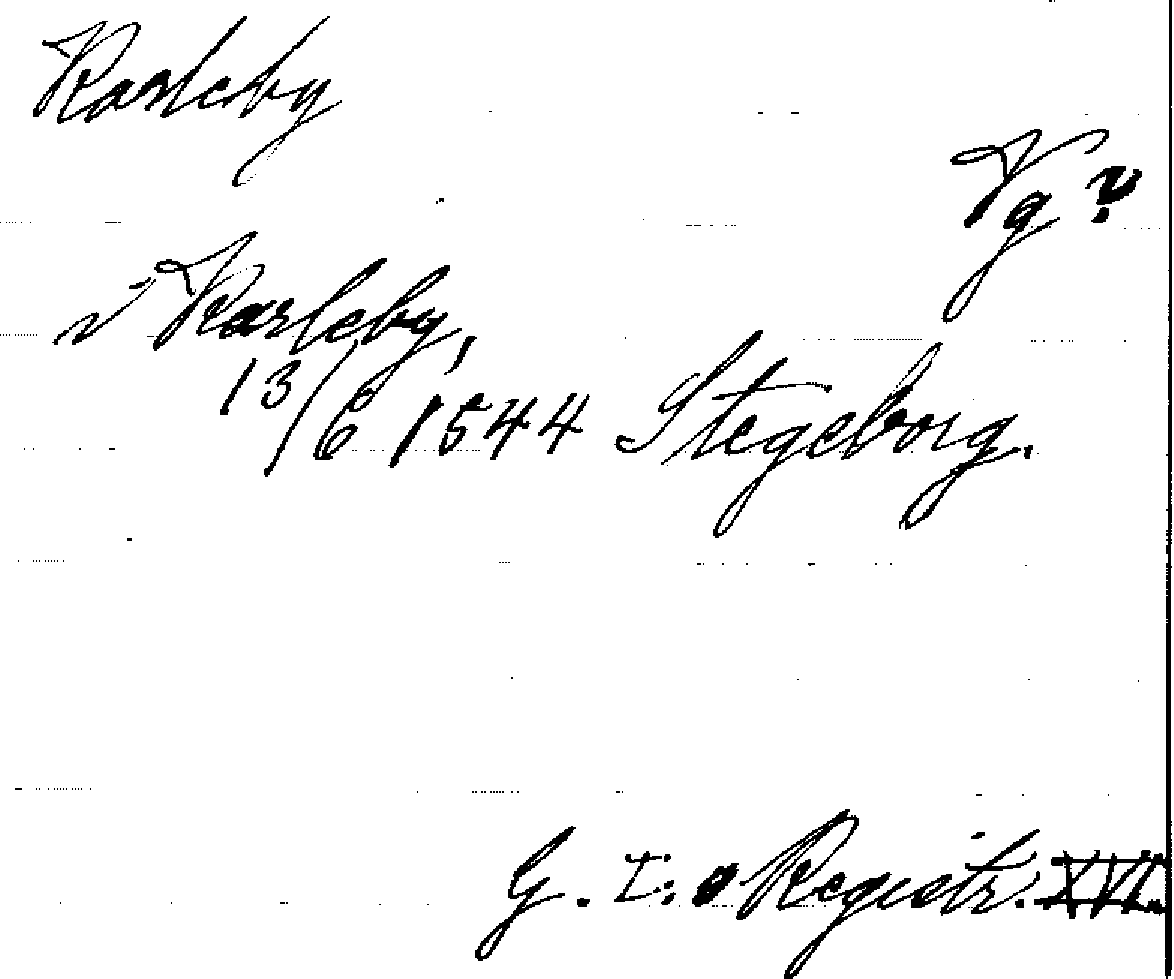 Karleby
Vg ?
i Karleby,
13/6 1544 Stegeborg.
G. I:s Registr. XVI.